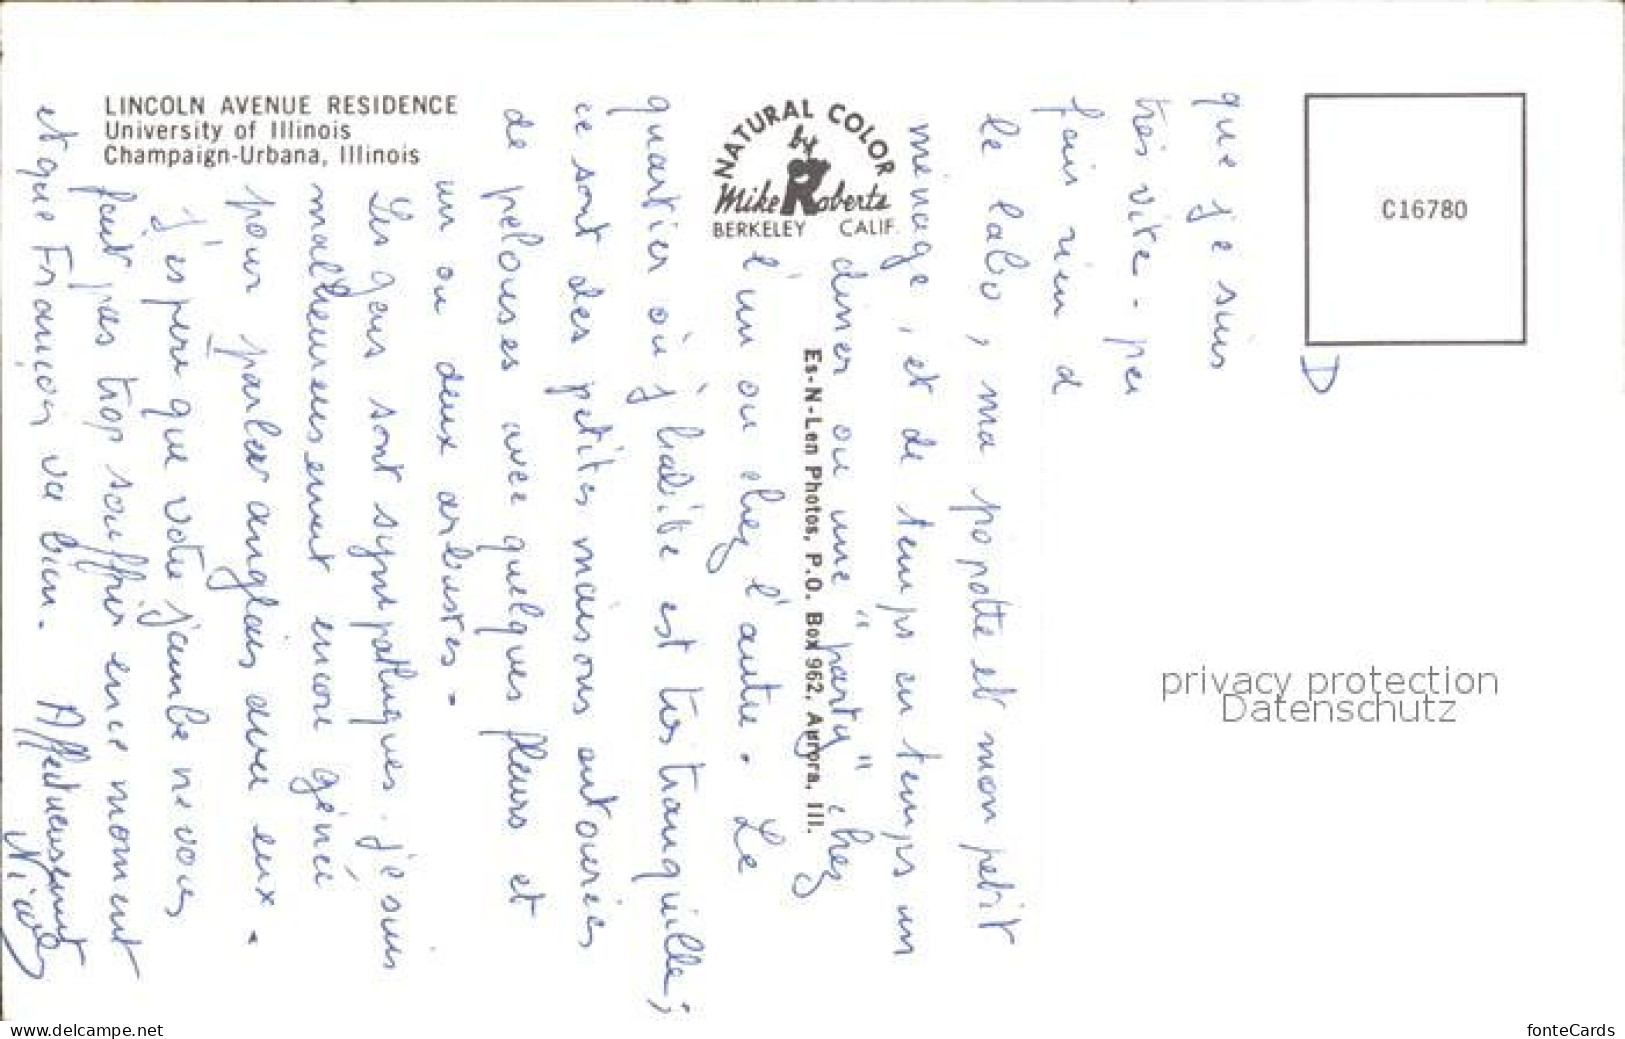 LINCOLN AVENUE RESIDENCE
University of Illinois
Champaign-Urbana, Illinois
NATURAL COLOR
by
Mike Roberts
BERKELEY CALIF.
Es-N-Len Photos, P.O. Box 962, Aurora, Ill.
C16780
D
que je suis
très vite - peu
fais rien d
le labo, ma popotte et mon petit
ménage, et de temps en temps un
diner ou une "party" chez
l'un ou chez l'autre. Le
quartier où j'habite est très tranquille;
ce sont des petites maisons entourées
de pelouses avec quelques fleurs et
un ou deux arbustes.
Les gens sont sympathiques. je suis
malheureusement encore génée
pour parler anglais avec eux.
j'espère que votre jambe ne vous
fait pas trop souffrir en ce moment
et que François va bien. Affectueusement
privacy protection
Datenschutz
www.delcampe.net
fonteCards